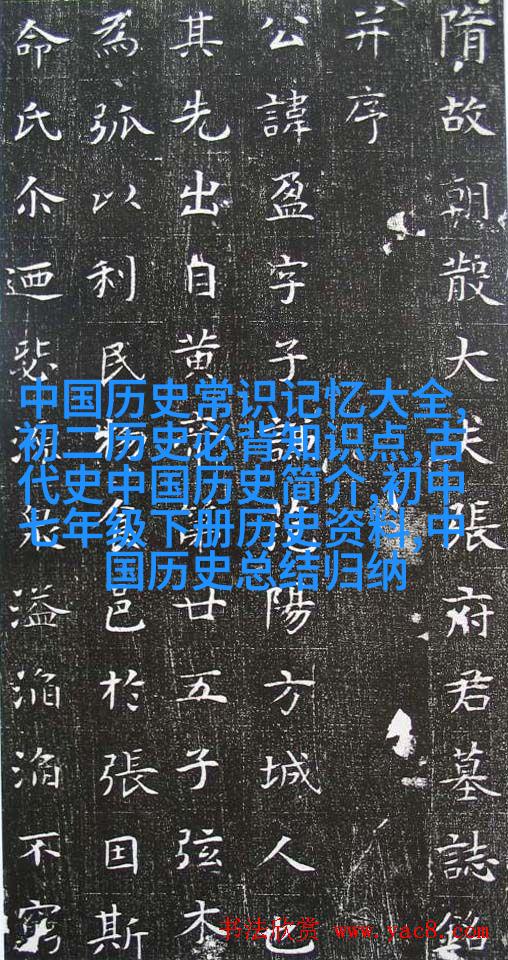 隋故朝散大夫張府君墓誌銘
并序
公諱盈字子陽方城人也
其先出自黃帝廿五子弦木
為弧以利民物食邑於張因斯
命氏尒迺溢滔滔不窮
中国历史常识记忆大全,
初二历史必背知识点,古
代史中国历史简介,初中
七年级下册历史资料,中
国历史总结归纳
书法欣赏 www.yac8.com